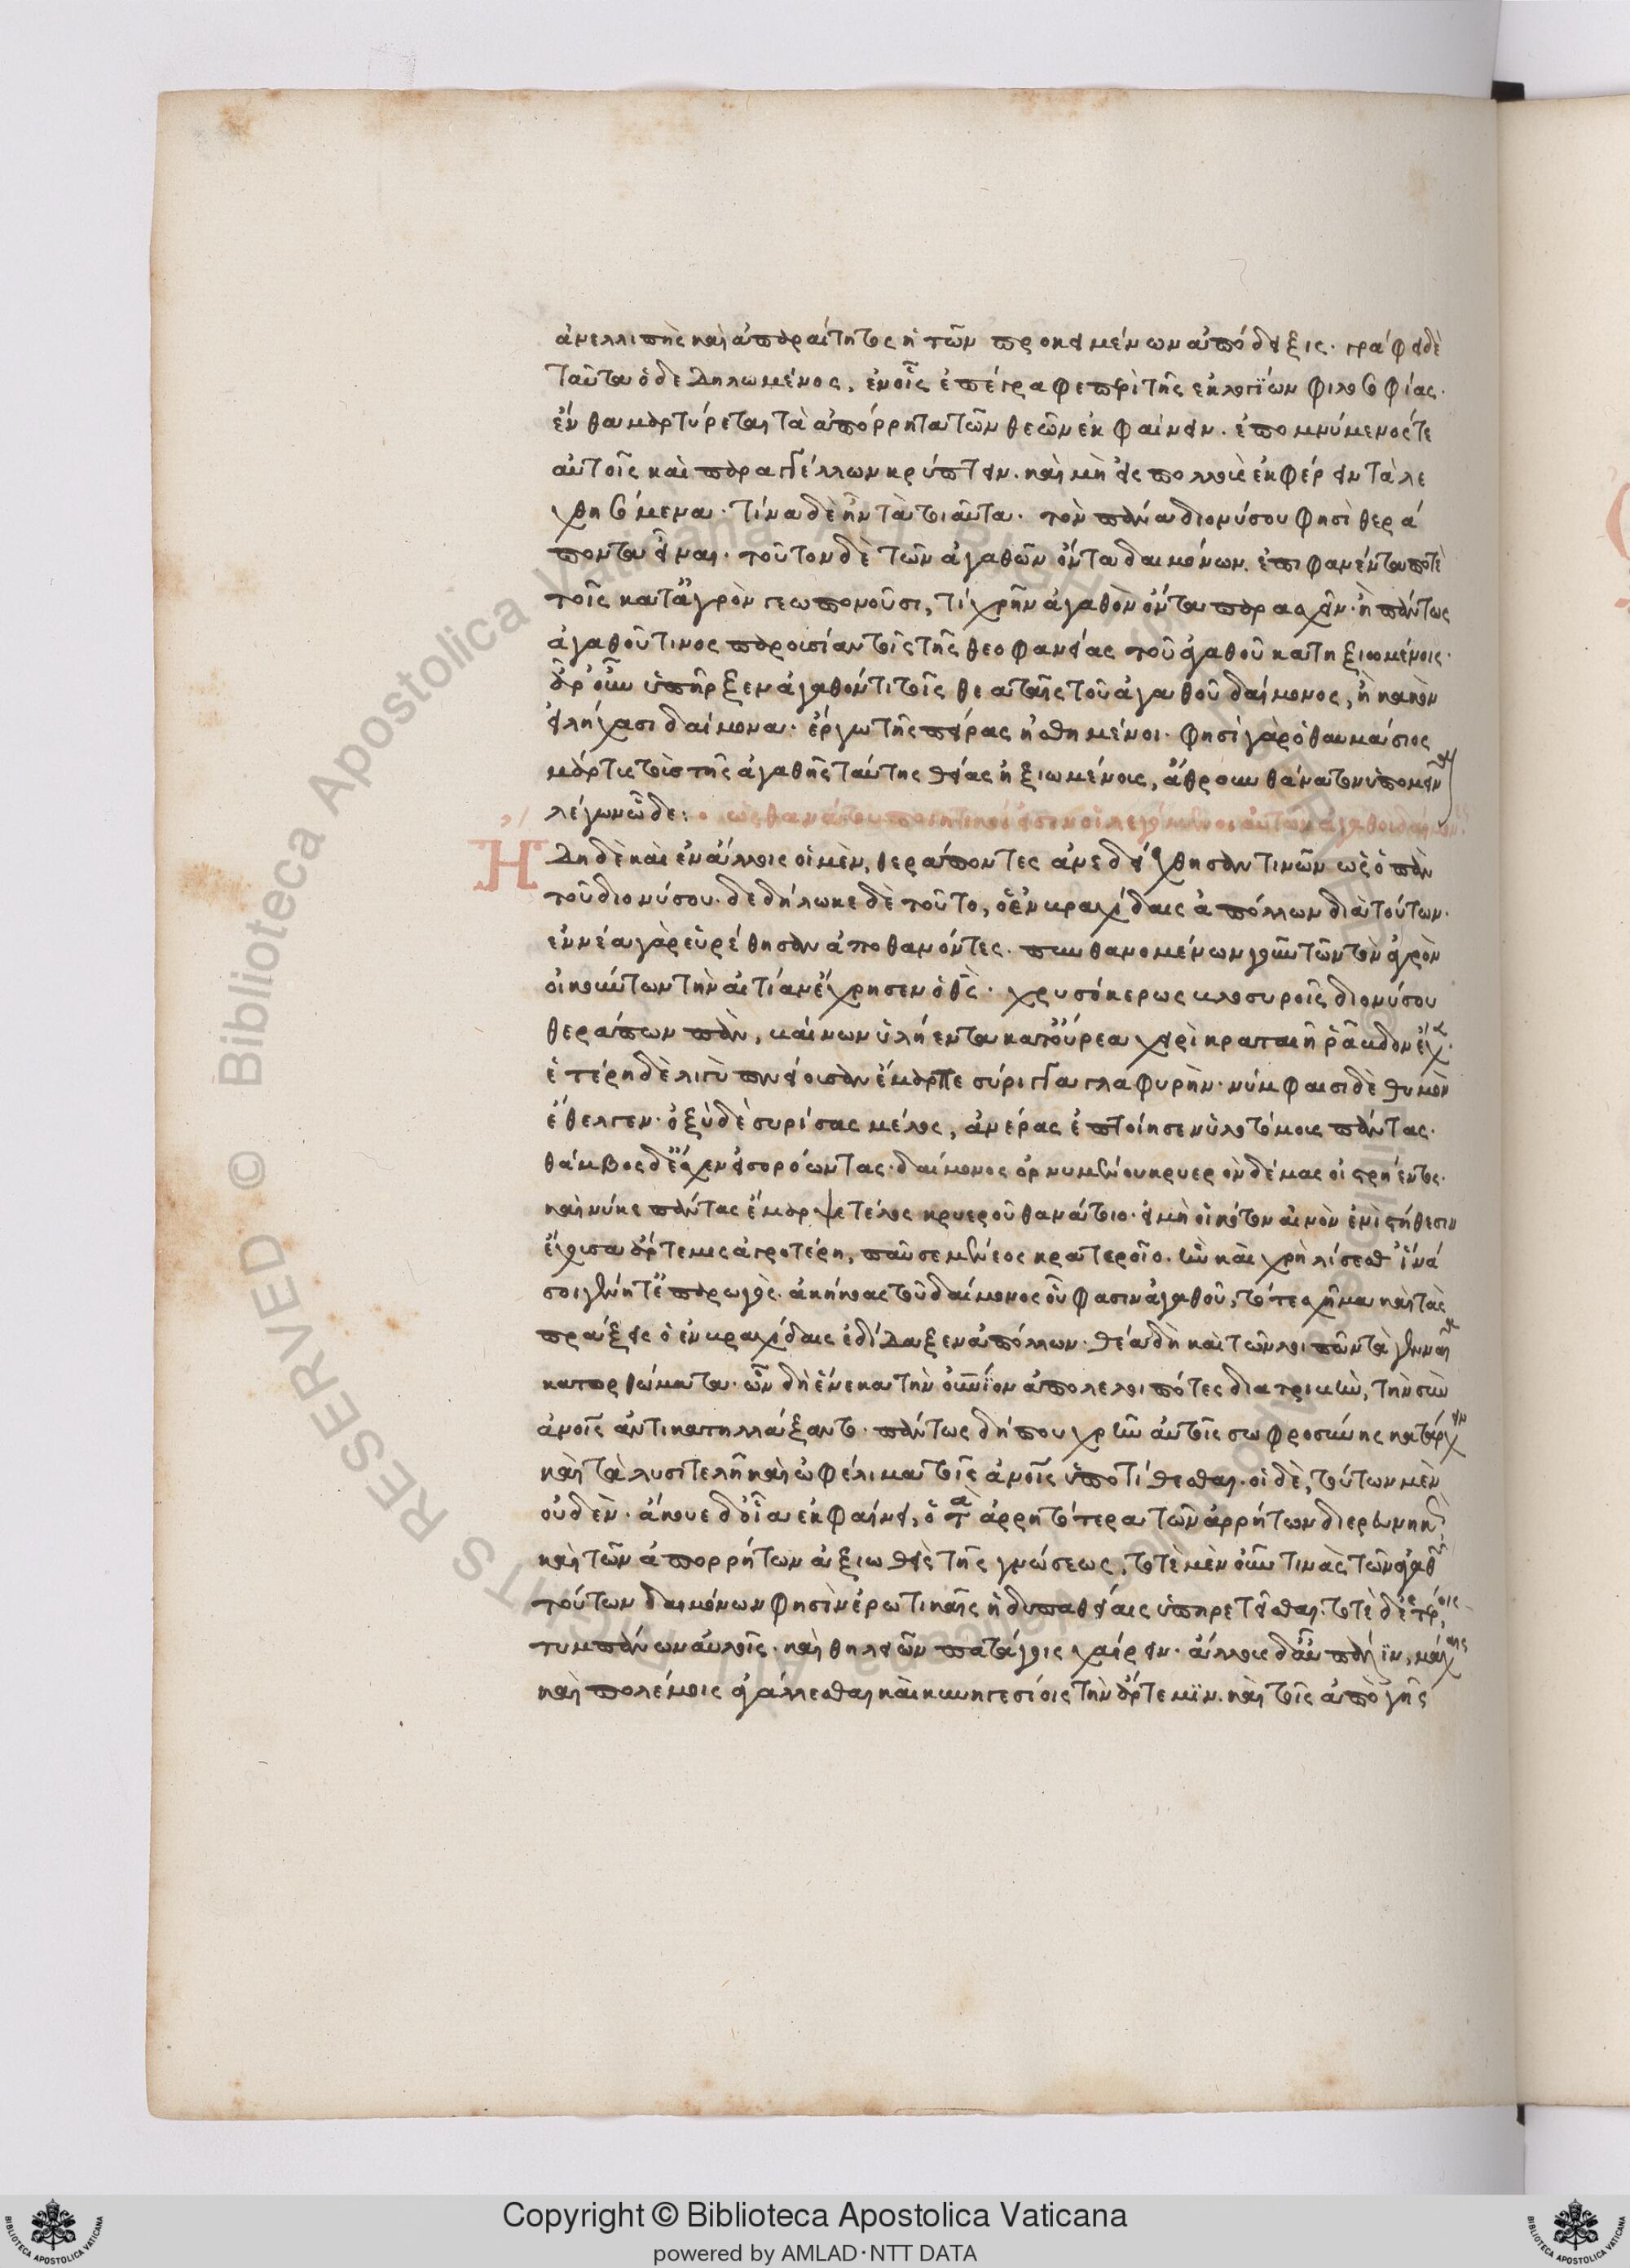 ἀνελλιπὴς καὶ ἀπαραίτητος ἡ τῶν προκειμένων ἀπόδειξις. γράφει δὲ
ταῦτα ὁ δεδηλωμένος, ἐν οἷς ἐπέγραφε περὶ τῆς ἐκ λογίων φιλοσοφίας.
ἔνθα μαρτύρεται τὰ ἀπόρρητα τῶν θεῶν ἐκφαίνειν. ἐπομνύμενός τε
αὐτοῖς καὶ παραγγέλλων κρύπτειν. καὶ μὴ εἰς πολλοὺς ἐκφέρειν τὰ λε
χθησόμενα. τίνα δὲ ἦν τὰ τοιαῦτα. τὸν πᾶνα διονύσου φησὶ θερά
ποντα εἶναι. τοῦτον δὲ τῶν ἀγαθῶν ὄντα δαιμόνων. ἐπιφανέντα ποτὲ
τοῖς κατ' ἀγρὸν γεωπονοῦσι, τί χρῆν ἀγαθὸν ὄντα παρασχεῖν. ἢ πάντως
ἀγαθοῦ τινος παρουσίαν τοῖς τῆς θεοφανείας τοῦ ἀγαθοῦ κατηξιωμένοις.
ἆρ' οὖν ὑπῆρξεν ἀγαθόν τι τοῖς θεαταῖς τοῦ ἀγαθοῦ δαίμονος, ἢ κακὸν
εἰλήχασι δαίμονα. ἔργω τῆς πείρας ἠσθημένοι. φησὶ γὰρ ὁ θαυμάσιος
μάρτυς τοὺς τῆς ἀγαθῆς ταύτης θέας ἠξιωμένους, ἄθρουν θάνατον ὑπομεῖναι
λέγων ὧδε: ὡς θανάτου ποιητικοί εἰσιν οἱ λεγόμενοι αὐτῶν ἀγαθοὶ δαίμονες
Ἤδη δὲ καὶ ἐν ἄλλοις οἱ μὲν, θεράποντες ἀνεδείχθησάν τινων ὡς ὁ πὰν
τοῦ διονύσου. δεδήλωκε δὲ τοῦτο, ὁ ἐν κραγχίδαις ἀπόλλων διὰ τούτων.
ἐννέα γὰρ εὑρέθησαν ἀποθανόντες. πυνθανομένων γοῦν τῶν τὸν ἀγρὸν
οἰκούντων τὴν αἰτίαν ἔχρησεν ὁ θς. χρυσόκερως βλοσυροῖς διονύσου
θεράπων πὰν, βαίνων ὑλήεντα κατ' οὔρεα χειρὶ κραταιῆ ῥάβδον ἔχεν.
ἑτέρη δὲ λιγὺ πνείουσαν ἔμαρπτε σύριγγα γλαφυρὴν. νύμφαισι δὲ θυμὸν
ἔθελγεν. ὀξὺ δὲ συρίσας μέλος, ἀνέρας ἐπτοίησεν ὑλοτόμους πάντας.
θάμβος δ' ἔσχεν εἰσορόωντας. δαίμονος ὀρνυμένου κρυερὸν δέμας οἰστρήεντος.
καί νύ κε πάντας ἔμαρψε τέλος κρυεροῦ θανάτοιο. εἰ μή οἱ κότον αἰνὸν ἐνὶ στήθεσιν
ἔχουσα ἄρτεμις ἀγροτέρη, παῦσε μένεος κρατεροῖο. ἣν καὶ χρὴ λίσεσθ' ἵνα
σοι γένητ' ἐπαρωγὸς. ἀκήκοας τοῦ δαίμονος οὗ φασιν ἀγαθοῦ, τό τε σχῆμα καὶ τὰς
πράξεις ὁ ἐν κραγχίδαις ἐδίδαξεν ἀπόλλων. θέα δὴ καὶ τῶν λοιπῶν τὰ γενναῖα
κατορθώματα. ὧν δὴ ἕνεκα τὴν οὐνίον ἀπολελοιπότες διατριβὴν, τὴν σὺν
ἀνοῖς ἀντικατηλλάξαντο. πάντως δήπου χρῆν αὐτοῖς σωφροσύνης κατάρχειν
καὶ τὰ λυσιτελῆ καὶ ὠφέλιμα τοῖς ἀνοῖς ὑποτίθεσθαι. οἱ δὲ, τούτων μὲν
οὐδὲν. ἄκουε δ' οἷα ἐκφαίνει, ὁ τὰ ἀρρητότερα τῶν ἀρρήτων διερευνηκὼς
καὶ τῶν ἀπορρήτων ἀξιωθεὶς τῆς γνώσεως, τοτὲ μὲν οὖν τινὰς τῶν ἀγαθῶν
τούτων δαιμόνων φησὶν ἐρωτικαῖς ἡδυπαθείαις ὑπηρετεῖσθαι. τοτὲ δὲ ἑτέροις
τυμπάνων αὐλοῖς. καὶ θηλειῶν πατάγοις χαίρειν. ἄλλους δ' αὖ πάλιν, μάχαις
καὶ πολέμοις ἀγάλλεσθαι καὶ κυνηγεσίοις τὴν ἄρτεμιν. καὶ τοῖς ἀπὸ γῆς
Copyright © Biblioteca Apostolica Vaticana
powered by AMLAD·NTT DATA